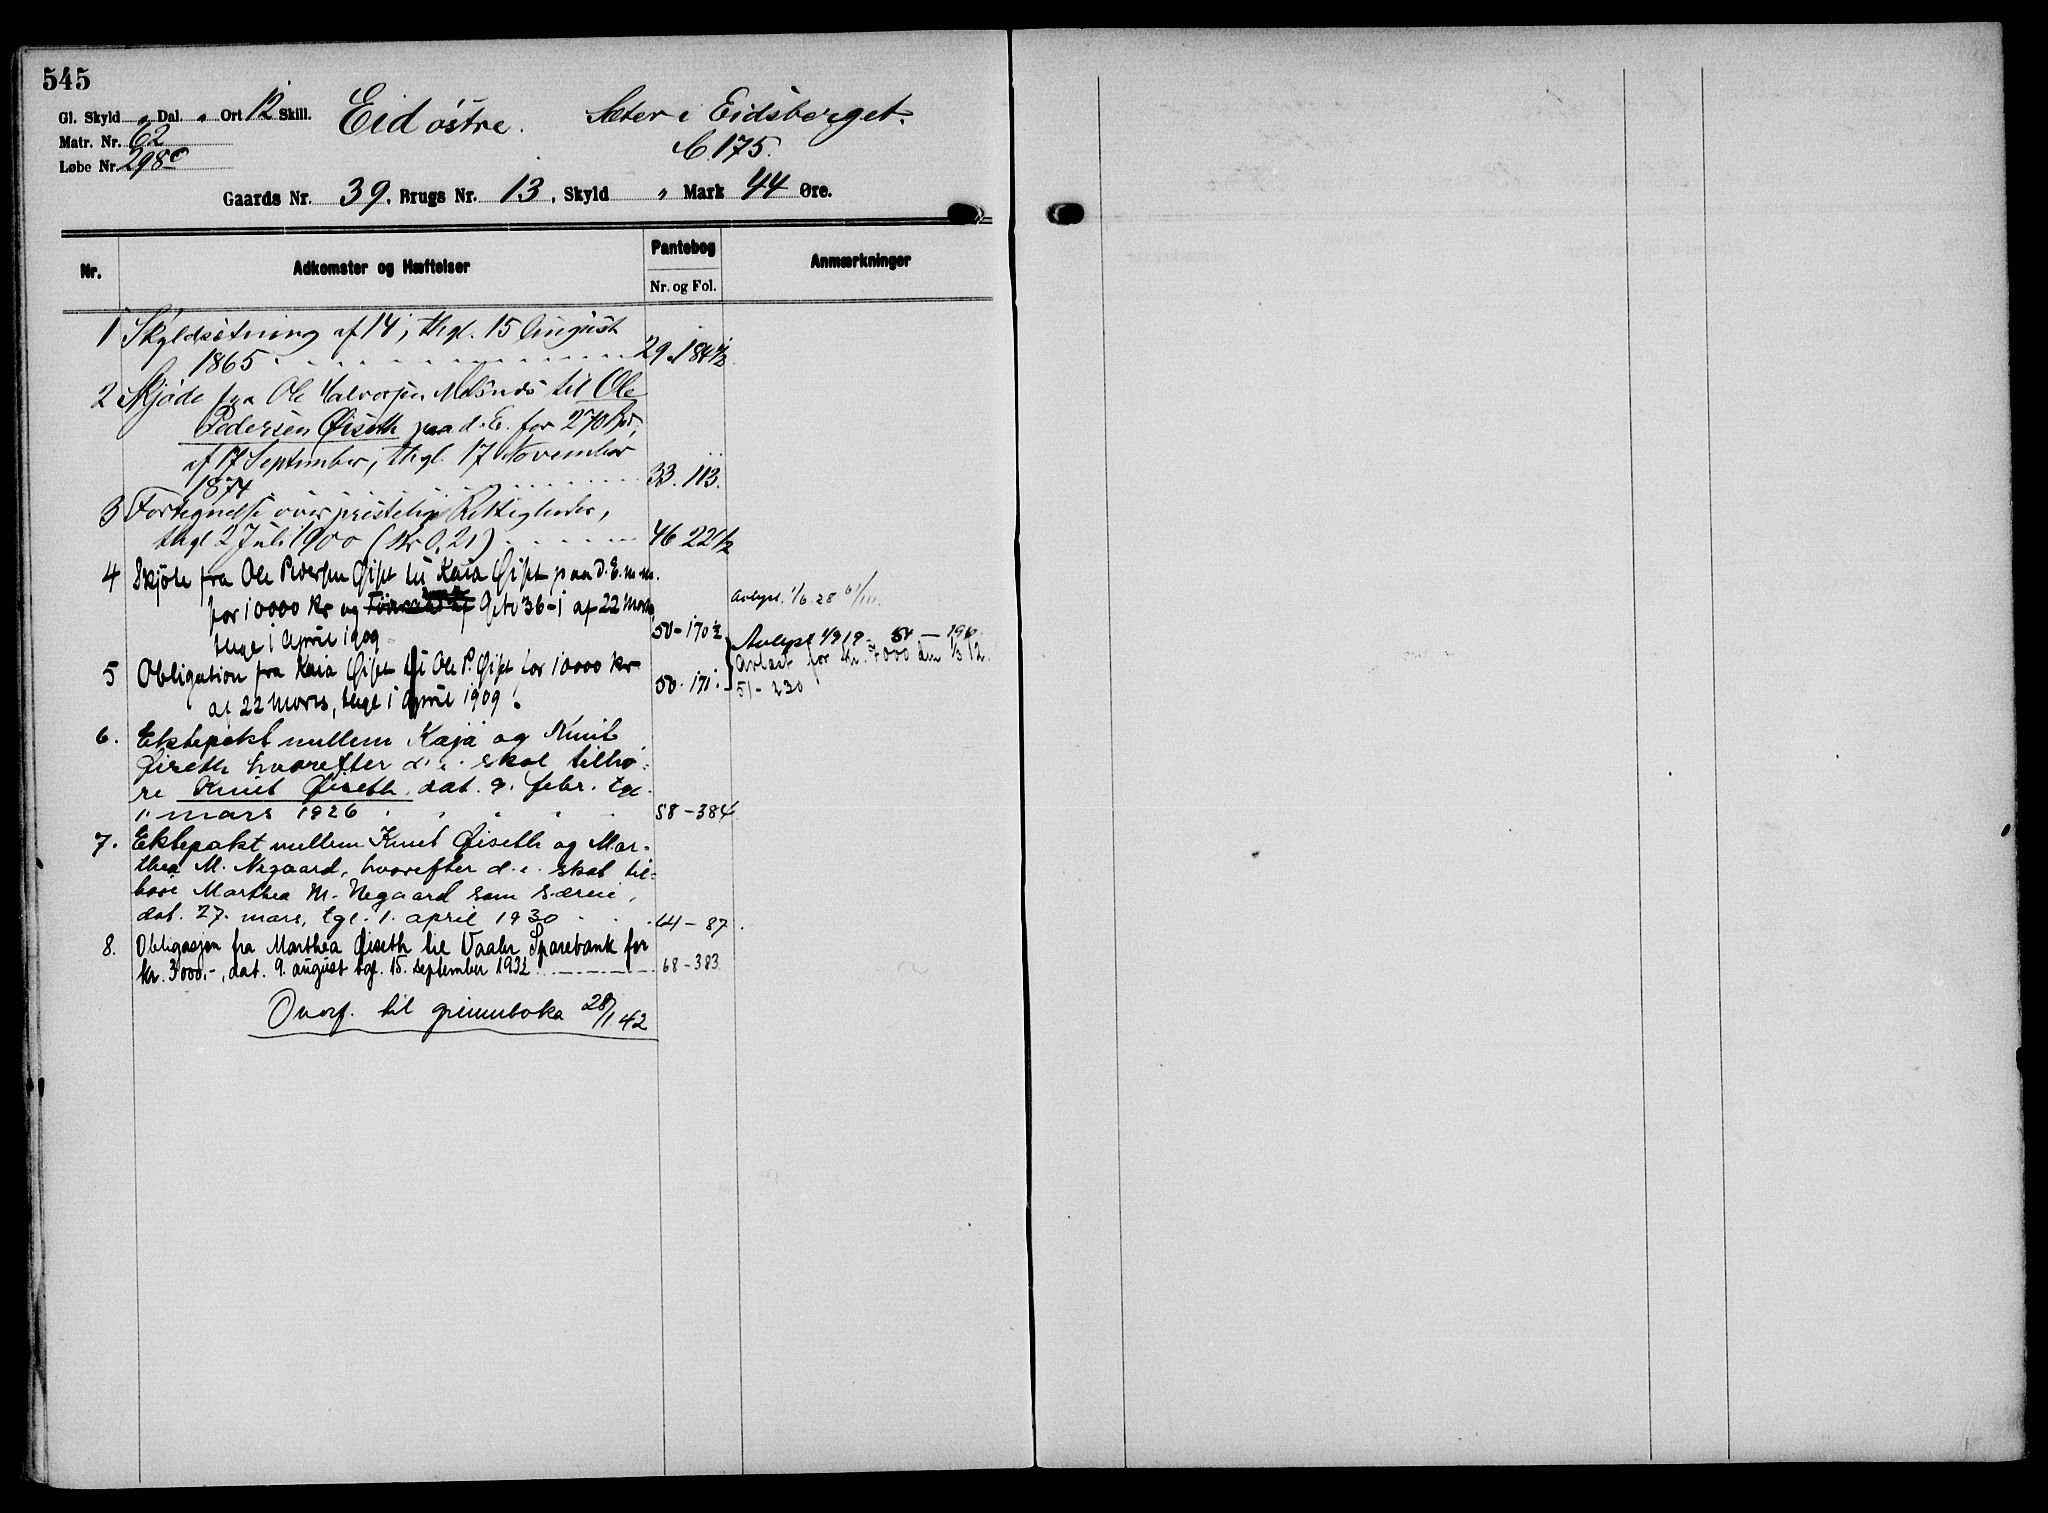 545
Gl. Skyld " Dal. " Ort 12 Skill. Eid østre. Sæter i Eidsberget.
Matr. Nr. 62
C. 175.
Løbe Nr. 298c
Gaards Nr. 39, Brugs Nr. 13, Skyld " Mark 44 Øre.
Nr. Adkomster og Hæftelser Pantebog Anmærkninger
Nr. og Fol.
1 Skyldsætning af 14, thgl. 15 August
1865 29. 184 1/2
2 Skjøde fra Ole Halvorsen til Ole
Pedersen Øiseth paa d. E. for 270 Spd,
af 17 September, thgl. 17 November
1874 33. 113.
3 Fortegnelse over præstelige Rettigheder,
thgl 2 Juli 1900 (Kr 0,21) 46 221/2
4 Skjöte fra Ole Pedersen Øiset til Kaia Øiset paa d. E. m. m.
for 10000 kr og af 22 Marts
tlgt 1 April 1909 50-170 1/2
Avlyst 1/6 28
5 Obligation fra Kaia Øiset til Ole P. Øiset for 10000 kr
af 22 Marts, tlgt 1 April 1909. 50-171.
Avlyst 1/9 19 - 54 - 196
Avläst for kr. 7000 den 1/3 12.
51-230
6. Ektepakt mellem Kaja og Knut
Øiseth hvorefter d. e. skal tilhø-
re Knut Øiseth, dat. 9. febr. tgl.
1. mars 1926 58-384
7. Ektepakt mellem Knut Øiseth og Mar-
thea M. Negaard, hvorefter d. e. skal til-
høre Marthea M. Negaard som særeie,
dat. 27. mars, tgl. 1. april 1930 64-87.
8. Obligasjon fra Marthea Øiseth til Vaaler Sparebank for
kr. 3000.-, dat. 9. august tgl. 15. september 1932 68-383
Overf. til grunnboka 28/1 42